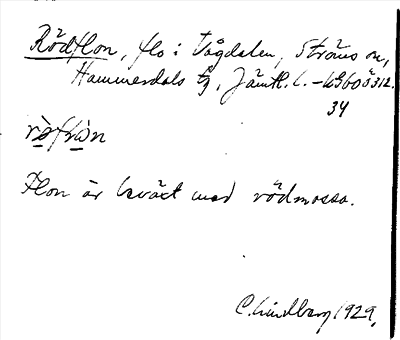 Rödflon, flo i Vågdalen, Ströms sn,
Hammerdals tg, Jämtl. l.
34
Flon är beväxt med rödmossa.
C. Lindberg 1929.